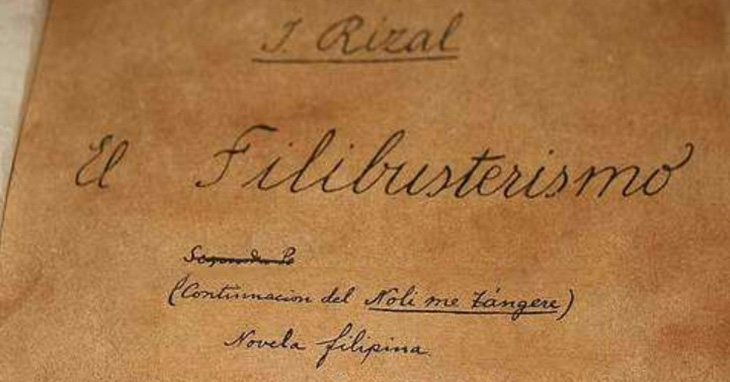 J. Rizal
El Filibusterismo
(Continuacion del Noli me tángere)
Novela filipina.